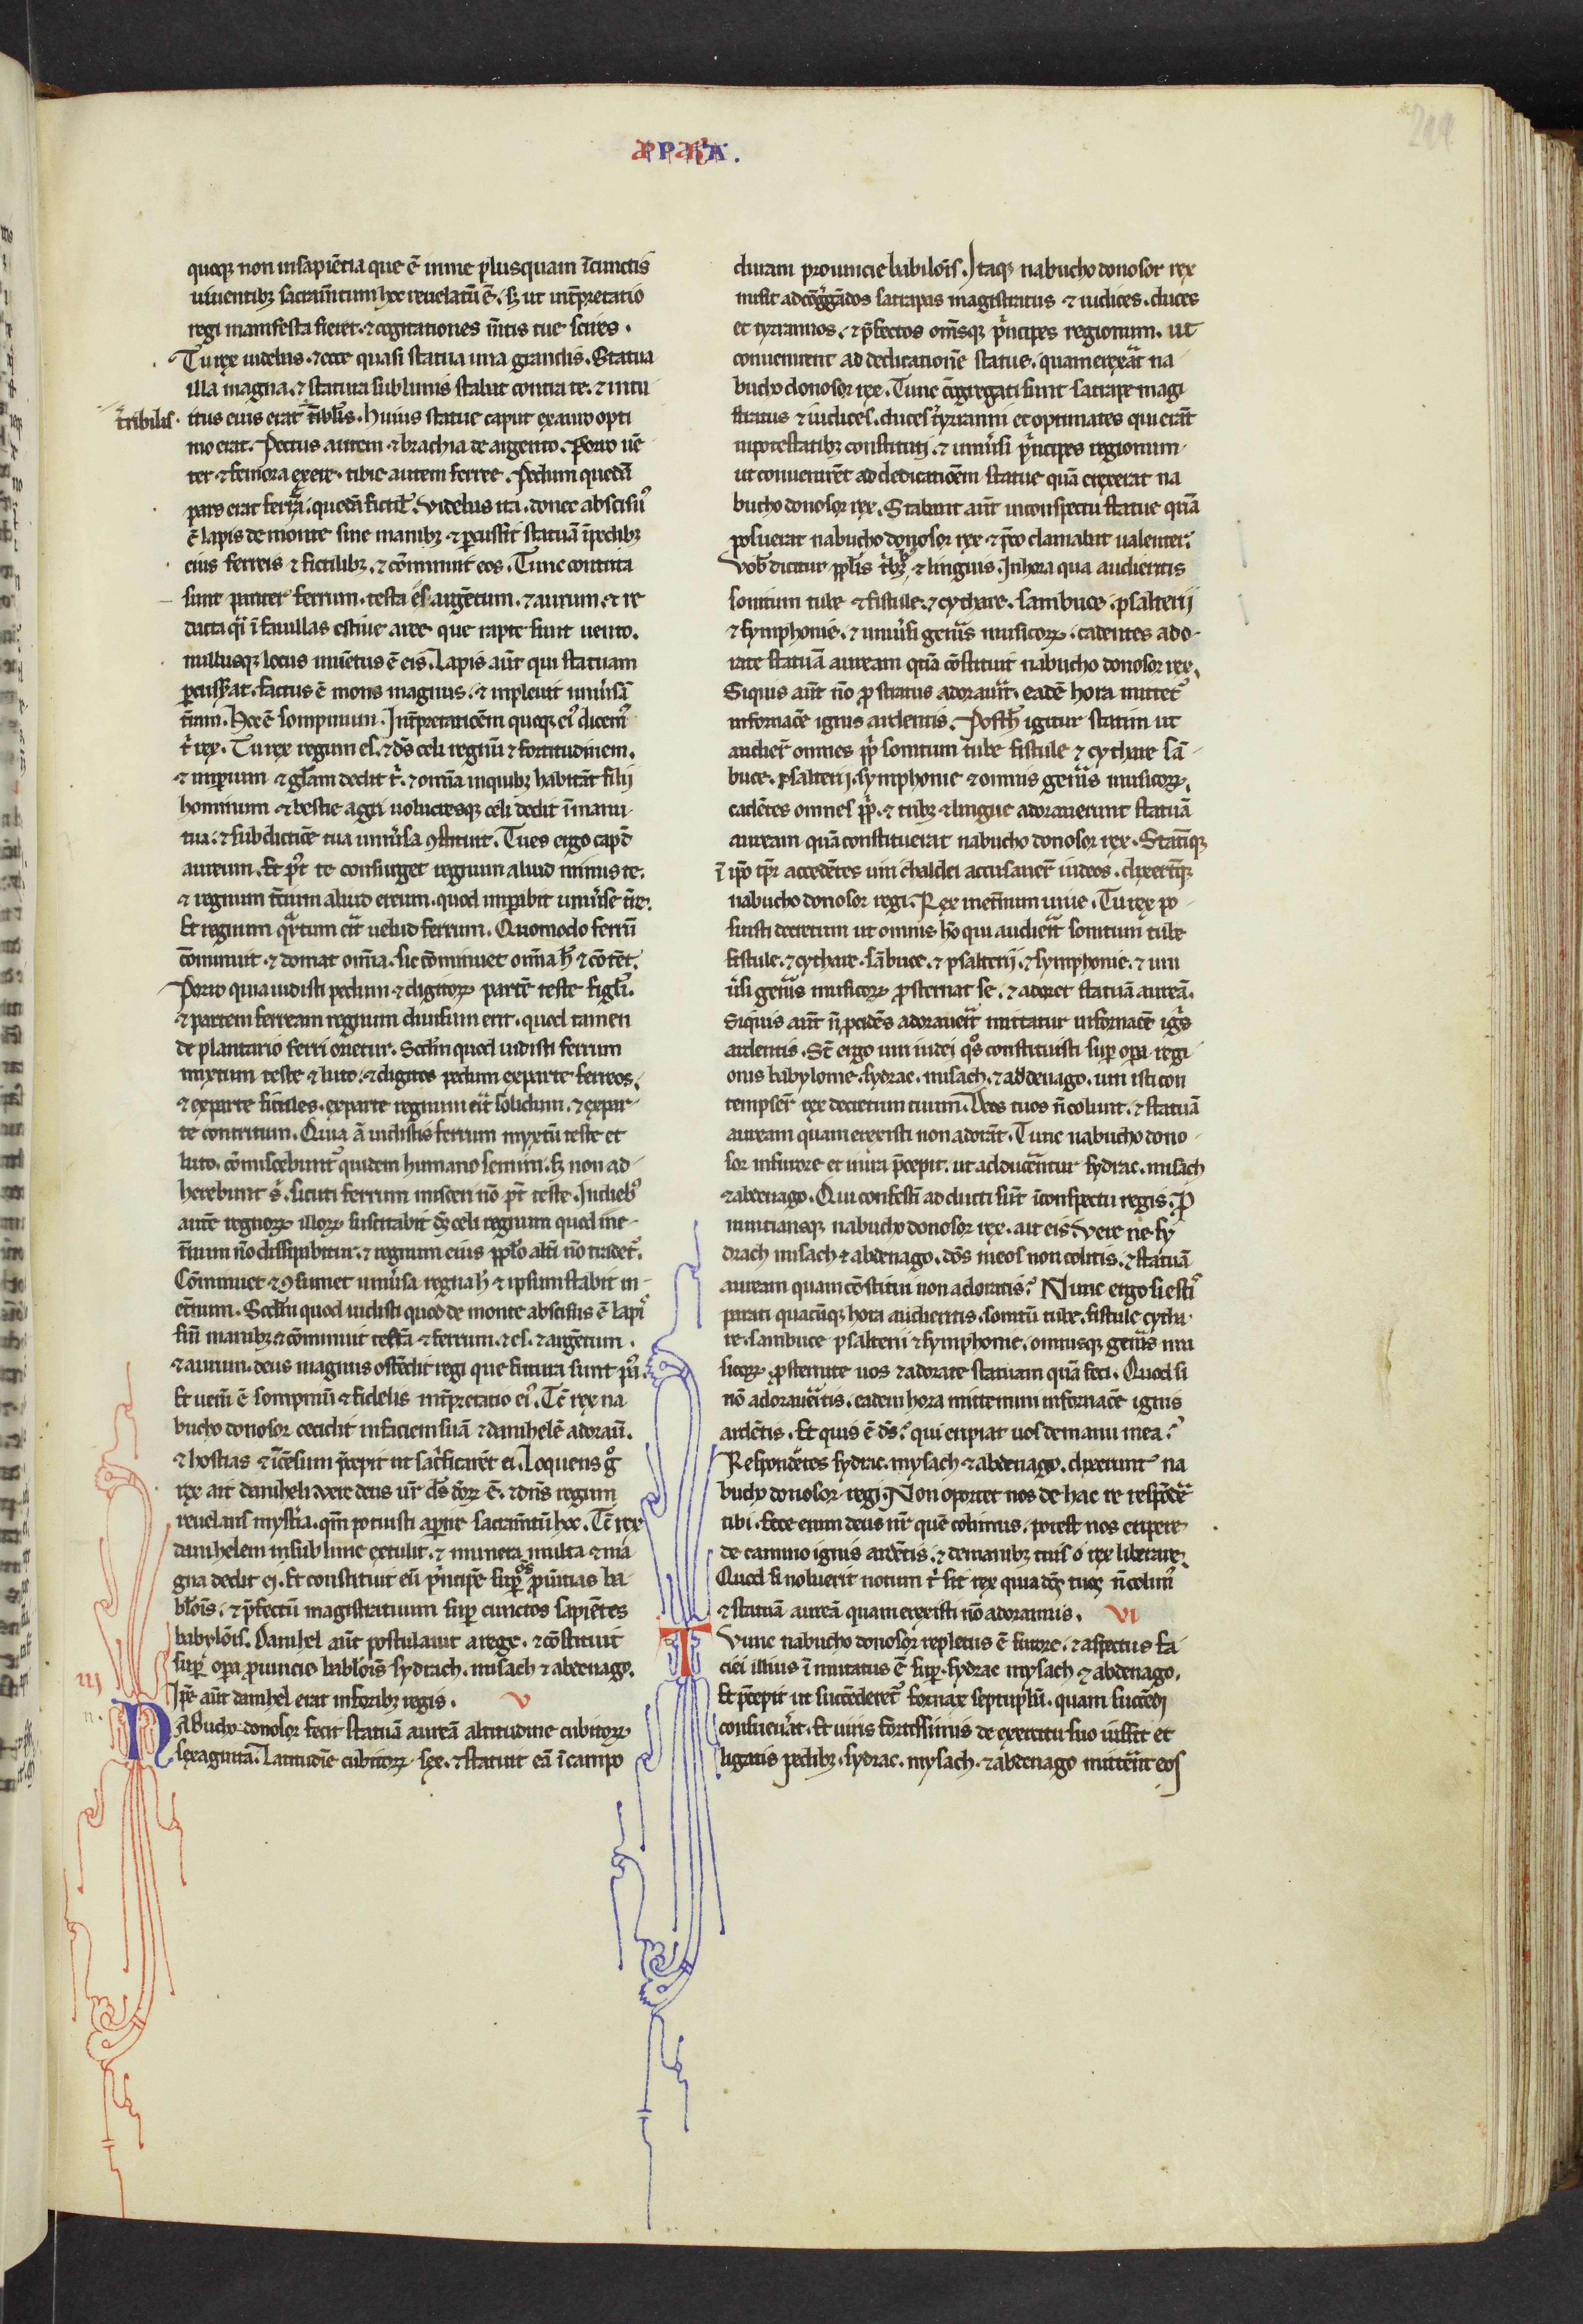 quoq; non in sapiētia que ē in me plusquam ī cunctis
uiuentib; sacram̄tum hoc reuelatū ē. sꝫ ut int̄pretatio
regi manifesta fieret. ⁊ cogitationes m̄tis tue scires.
Tu rex uidebas. ⁊ ecce quasi statua una grandis. Statua
illa magna. ⁊ statura sublimis stabat contra te. ⁊ intu
t̄ribilis. itus eius erat t̄ibilis. Huius statue caput ex auro opti
mo erat. Pectus autem ⁊ brachia de argento. Porro uē
ter ⁊ femora ex ere. tibie autem ferree. Pedum quedā
pars erat ferrea. quedā fictil'. Videbas ita. donec abscisus
ē lapis de monte sine manib; ⁊ ꝑcussit statuā ī pedib;
eius ferreis ⁊ fictilib;. ⁊ cōminuit eos. Tunc contrita
sunt pariter ferrum. testa es. argētum. ⁊ aurum. ⁊ re
dacta qⁱ ī fauillas estiue aree que rapte sunt uento.
nullusq; locus inuētus ē eis. Lapis aūt qui statuam
ꝑcusserat. factus ē mons magnus. ⁊ impleuit uniu'sā
t̄ram. Hoc ē sompnium. Int̄pretatiōem quoq; ei' dicem'
t' rex. Tu rex regum es. ⁊ ds̄ celi regnū ⁊ fortitudinem.
⁊ imꝑium ⁊ gl'am dedit t'. ⁊ om̄ia in quib; habitāt filij
hominum ⁊ bestie agri uolucresq; celi dedit ī manu
tua. ⁊ sub dictiōe tua uniu'sa ꝯstituit. Tu es ergo capd
aureum. Et pt' te consurget regnum aliud minus te.
⁊ regnum t̄cium aliud ereum. quod imꝑabit uniu'se t̄re.
Et regnum qͣrtum erit uelud ferrum. Quomodo ferrū
cōminuit ⁊ domat om̄ia. sic cōminuet om̄ia h' ⁊ cōtēt.
Porro quia uidisti pedum ⁊ digitoꝝ partē teste figl'i.
⁊ partem ferream regnum diuisum erit. quod tamen
de plantario ferri orietur. Scd̄m quod uidisti ferrum
mixtum teste ⁊ luto. ⁊ digitos pedum ex parte ferreos.
⁊ ex parte fictiles. ex parte regnum erit solidum. ⁊ ex par
te contritum. Quia ā uidistis ferrum myxtū teste et
luto. cōmiscebunt' quidem humano semini. sꝫ non ad
herebunt s'. sicuti ferrum misceri nō pt' teste. In dieb'
autē regnoꝝ illoꝝ suscitabit ds̄ celi regnum quod in e
t̄num nō dissipabitur. ⁊ regnum eius ppl'o alt'i nō tradet'.
Cōminuet ⁊ ꝯsumet uniu'sa regna h' ⁊ ipsum stabit in
et̄num. Scd̄m quod uidisti quod de monte abscisus ē lapis
sin̄ manib; ⁊ cōminuit testā ⁊ ferrum. ⁊ es. ⁊ argētum.
⁊ aurum. deus magnus ostēdit regi que futura sunt p'.
Et uer̄ ē sompniū ⁊ fidelis int̄pretatio ei'. Tc̄ rex na
bucho donosor cecidit in faciem suā ⁊ danihelē adorau̅.
⁊ hostias ⁊ īcēsum p̄cepit ut sac'ficarēt ei. Loquens g°
rex ait daniheli. Vere deus ur̄ ds̄ deoꝝ ē. ⁊ dn̄s regum
reuelans myst'ia. qm̄ potuisti aꝑire sacram̄tū hoc. Tc̄ rex
danihelem in sublime extulit. ⁊ munera multa ⁊ ma
gna dedit ei. Et constituit eū p'ncipē suꝑ os̄ prouīcias ba
bil'ois. ⁊ p̄fectū magistratuum suꝑ cunctos sapiētes
babylōis. Danihel aūt postulauit a rege. ⁊ cōstituit
suꝑ oꝑa prouincie babil'ois sydrach. misach ⁊ abdenago.
Ipse aūt danihel erat in forib; regis. V
Nabucho donosor fecit statuā aureā altitudine cubitoꝝ
sexaginta. Latitudīe cubitoꝝ sex. ⁊ statuit eā ī campo
apparA.
duram prouincie babilois. Itaq; nabucho donosor rex
misit ad cōgregādos satrapas magistratus ⁊ iudices. duces
et tyrannos. ⁊ p̄fectos omn̄sq; p'ncipes regionum. ut
conuenirent ad dedicationē statue. quam erexāt na
bucho donosor rex. Tunc cōgregati sunt satrape magi
stratus ⁊ iudices. duces ⁊ tyranni et optimates qui erāt
in potestatib; constituti. ⁊ uniu'si p'ncipes regionum
ut conuenirēt ad dedicatiōem statue quā erexerat na
bucho donosor rex. Stabant aūt in conspectu statue quā
posuerat nabucho donosor rex ⁊ p̄co clamabat ualenter.
Vob' dicitur ppl'is t'b; ⁊ linguis. In hora qua audieritis
sonitum tube ⁊ fistule. ⁊ cythare. sambuce. psalterij
⁊ symphonie. ⁊ uniu'si gen'is musicoꝝ. cadentes ado
rate statuā auream quā cōstituit nabucho donosor rex.
Siquis aūt nō pro stratus adorau'it. eadē hora mittet'
in fornacē ignis ardentis. Post h' igitur statim ut
audier̄ omnes ppl'i sonitum tube fistule ⁊ cythare sā
buce. psalterij. symphonie ⁊ omnis gen'is musicoꝝ.
cadētes omnes ppl'i. ⁊ trib; ⁊ lingue adorauerunt statuā
auream quā constituerat nabucho donosor rex. Statīq;
ī ip̄o tpr̄ accedētes uiri chaldei accusauer̄ iudeos. dixer̄tq;
nabucho donosor regi. Rex in et̄num uiue. Tu rex po
suisti decretum ut omnis hō qui audierit sonitum tube
fistule. ⁊ cythare. sābuce. ⁊ psalterij. ⁊ symphonie. ⁊ uni
u'si gen'is musicoꝝ prosternat se. ⁊ adoret statuā aureā.
Siquis aūt n̄ procidēs adorauerit mittatur in fornacē ig's
ardentis. St̄ ergo uiri iudei qͦs constituisti suꝑ oꝑa regi
onis babylonie. sydrac. misach. ⁊ abdenago. uiri isti con
tempser̄ rex decretum tuum. Deos tuos n̄ colunt. ⁊ statuā
auream quam erexisti non adorāt. Tunc nabucho dono
sor in furore et in ira p̄cepit. ut adducerentur sydrac. misach
⁊ abdenago. Qui confestī ad ducti sūt ī conspectu regis. Pro
nuntiansq; nabucho donosor rex. ait eis. Vere ne sy
drach misach ⁊ abdenago. dōs meos non colitis. ⁊ statuā
auream quam cōstitui non adoratis? Nunc ergo si esti'
parati quacūq; hora audieritis. sonitū tube. fistule cytha
re. sambuce psalterii ⁊ symphonie. omnisq; gen'is mu
sicoꝝ. prosternite uos ⁊ adorate statuam quā feci. Quod si
nō adorau'itis. eadem hora mittemini in fornacē ignis
ardētis. Et quis ē ds̄? qui eripiat uos de manu mea?
Respondētes sydrac. mysach ⁊ abdenago. dixerunt na
bucho donosor regi. Non oportet nos de hac re respōdēre
tibi. Ecce enim deus nr̄ quē colimus. potest nos eripere
de camino ignis ardētis. ⁊ de manib; tuis o rex liberare.
Quod si noluerit notum t' sit rex quia deos tuos n̄ colim'
⁊ statuā aureā quam erexisti nō adoramus. VI
Tunc nabucho donosor repletus ē furore. ⁊ aspectus fa
ciei illius īmutatus ē suꝑ. sydrac mysach ⁊ abdenago.
Et p̄cepit ut succēderet' fornax septuplū. quam succēdi
consueu'at. Et uiris fortissimis de exercitu suo iussit et
ligatis pedib;. sydrac. mysach. ⁊ abdenago mitterēt eos